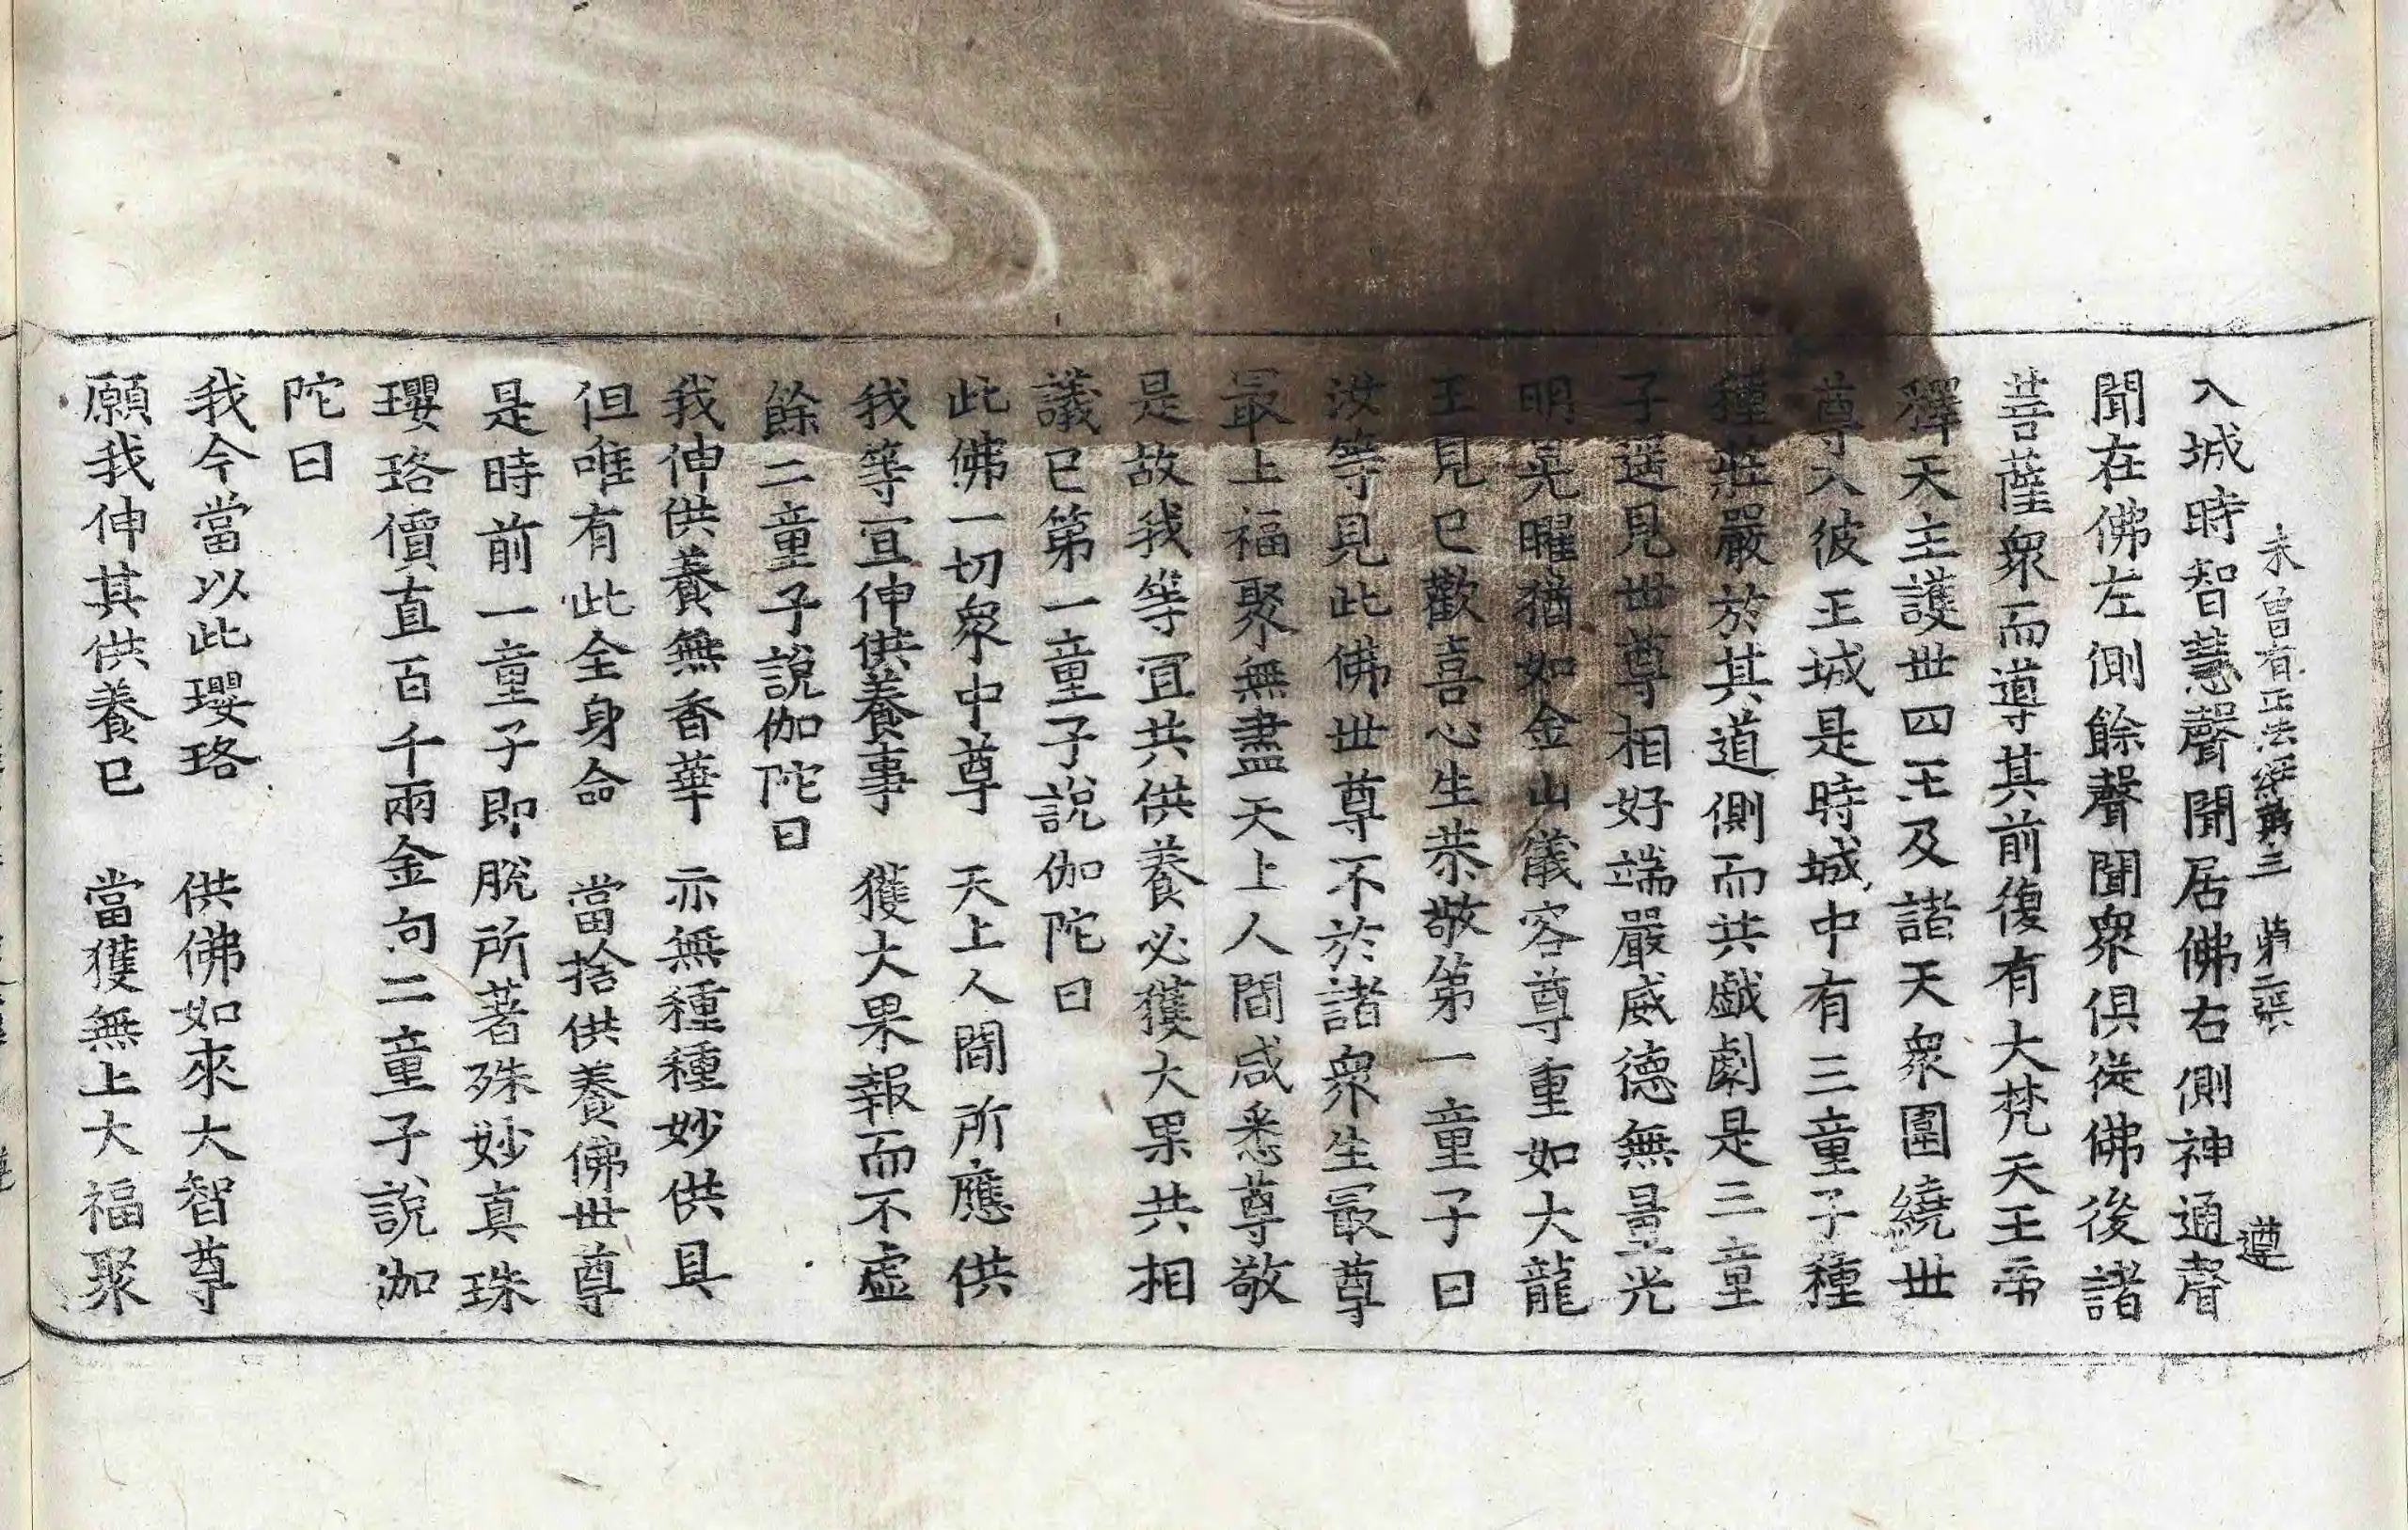 未曾有正法經第三 第二張 遵
入城時智慧聲聞居佛右側神通聲
聞在佛左側餘聲聞眾俱從佛後諸
菩薩眾而導其前復有大梵天王帝
釋天主護世四王及諸天眾圍繞世
尊入彼王城是時城中有三童子種
種莊嚴於其道側而共戲劇是三童
子遥見世尊相好端嚴威德無量光
明晃曜猶如金山儀容尊重如大龍
王見已歡喜心生恭敬第一童子曰
汝等見此佛世尊不於諸眾生㝡尊
㝡上福聚無盡天上人間咸悉尊敬
是故我等宜共供養必獲大果共相
議已第一童子說伽陀曰
此佛一切眾中尊 天上人間所應供
我等宜伸供養事 獲大果報而不虛
餘二童子說伽陀曰
我伸供養無香華 亦無種種妙供具
但唯有此全身命 當捨供養佛世尊
是時前一童子即脫所著殊妙真珠
瓔珞價直百千兩金向二童子說伽
陀曰
我今當以此瓔珞 供佛如來大智尊
願我伸其供養已 當獲無上大福聚